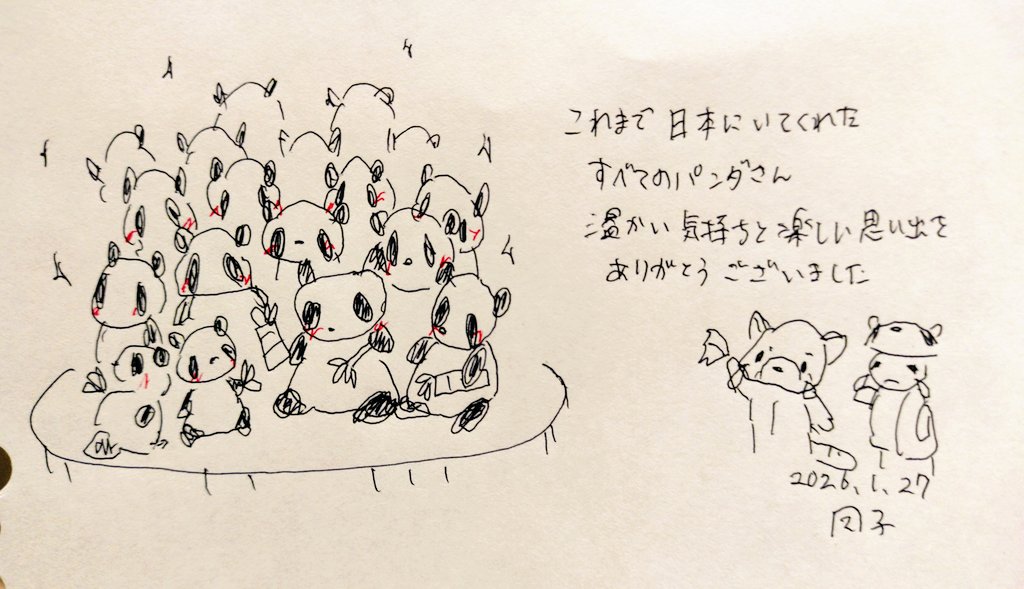 これまで日本にいてくれた
すべてのパンダさん
温かい気持ちと楽しい思い出を
ありがとうございました
2026.1.27